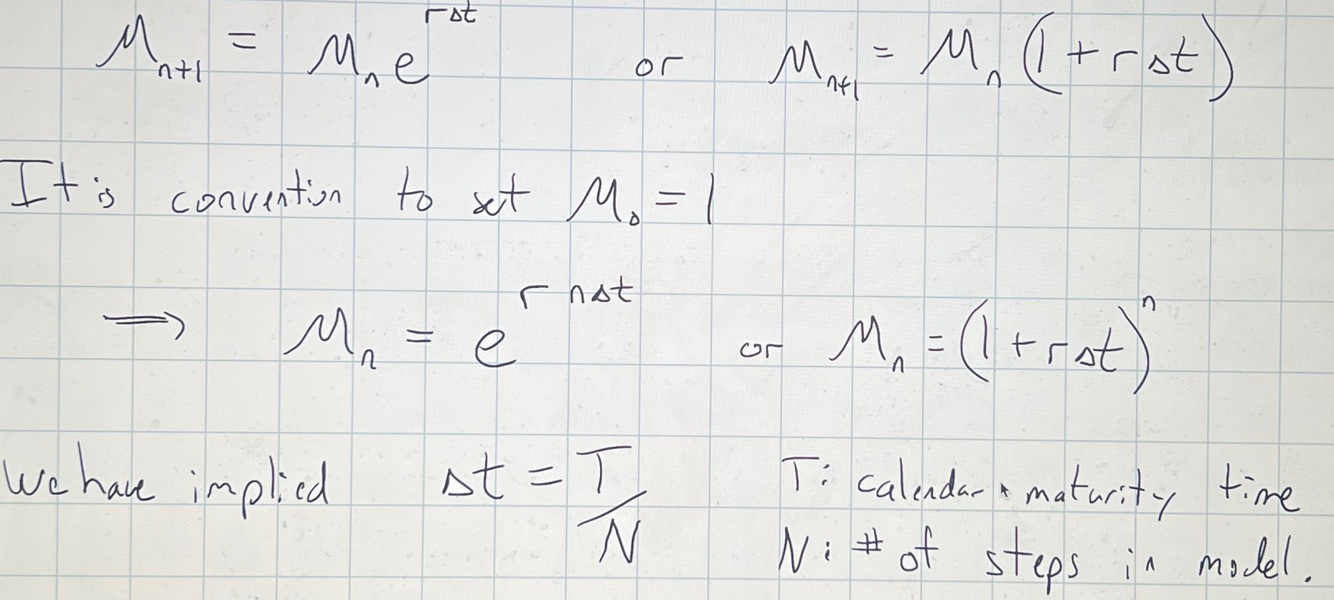 M_{n+1} = M_n e^{rΔt} or M_{n+1} = M_n (1 + rΔt)
It is convention to set M_0 = 1
⟹ M_n = e^{r nΔt} or M_n = (1 + rΔt)^n
We have implied Δt = T/N T: calendar maturity time
N: # of steps in model.